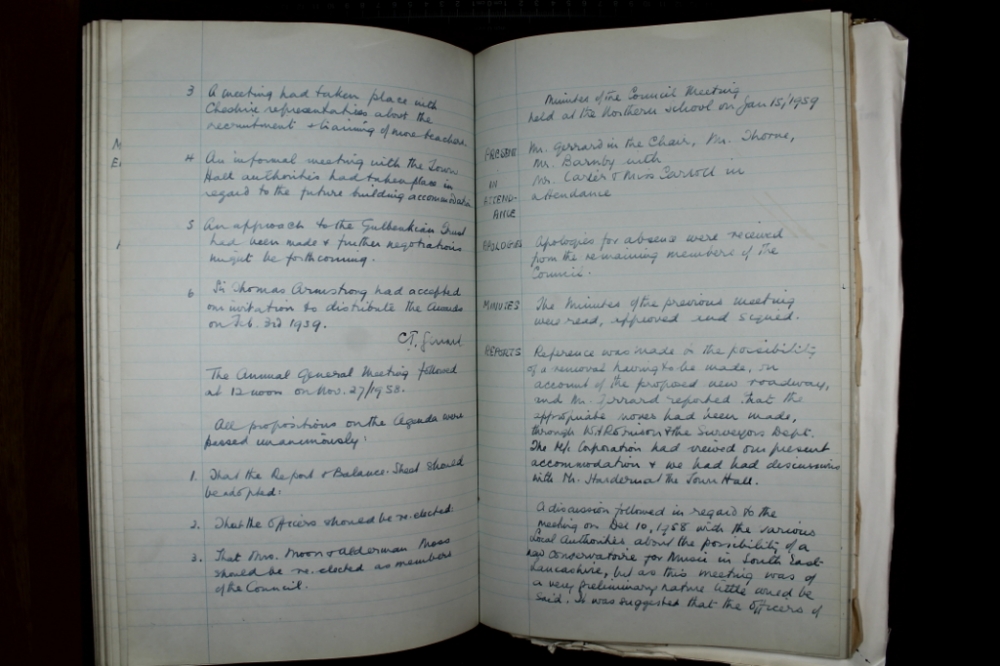 3 A meeting had taken place with
Cheshire representatives about the
recruitment & training of more teachers.
4 An informal meeting with the Town
Hall authorities had taken place in
regard to the future building accommodation
5 An approach to the Gulbenkian Trust
had been made & further negotiations
might be forthcoming.
6 Sir Thomas Armstrong had accepted
our invitation to distribute the Awards
on Feb. 3rd 1959.
The Annual General Meeting followed
at 12 noon on Nov. 27/1958.
All propositions on the Agenda were
passed unanimously:
1. That the Report & Balance-Sheet should
be adopted.
2. That the officers should be re-elected.
3. That Mrs. Moon & Alderman Moss
should be re-elected as members
of the Council.
Minutes of the Council Meeting
held at the Northern School on Jan 15/1959
PRESENT Mr. Gerrard in the Chair, Mr. Thorne,
Mr. Barnby with
IN ATTEND- Mr. Carter & Miss Carroll in
ANCE attendance
APOLOGIES Apologies for absence were received
from the remaining members of the
Council.
MINUTES The Minutes of the previous meeting
were read, approved and signed.
REPORTS Reference was made to the possibility
of a removal having to be made, on
account of the proposed new roadway,
and Mr. Gerrard reported that the
appropriate moves had been made,
through & the Surveyors Dept.
The M/c Corporation had viewed our present
accommodation & we had had discussions
with Mr. at the Town Hall.
A discussion followed in regard to the
meeting on Dec 10, 1958 with the various
Local Authorities about the possibility of a
new Conservatoire for Music in South East
Lancashire, but as this meeting was of
a very preliminary nature little could be
said. It was suggested that the officers of